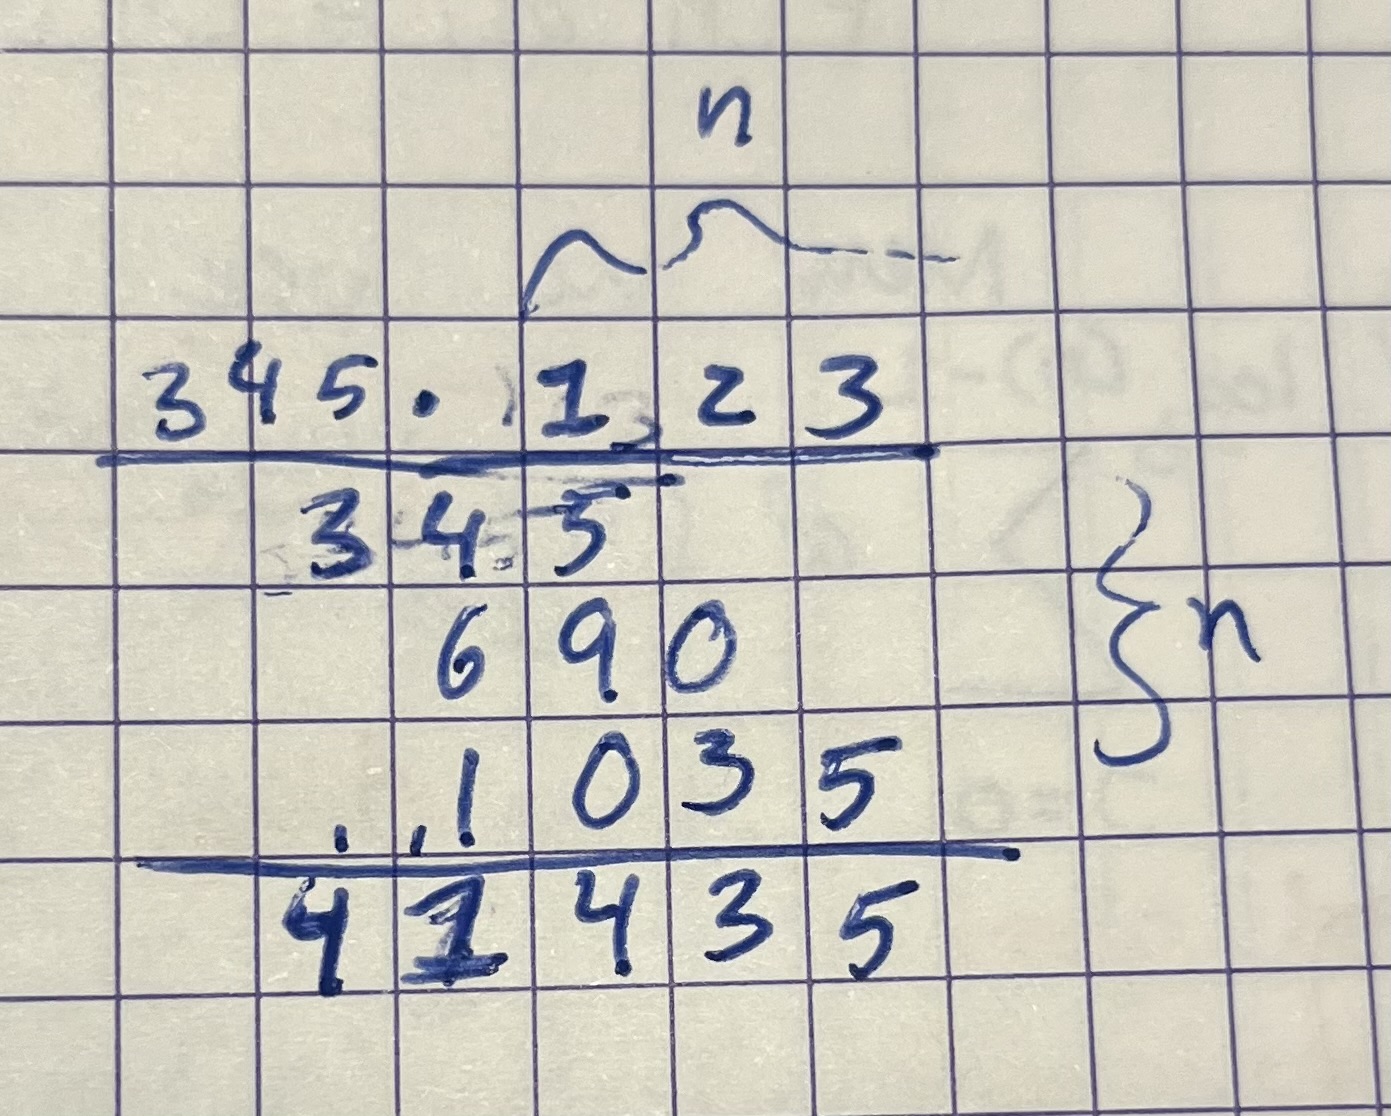 n
345 . 123
345
690 n
1035
41435